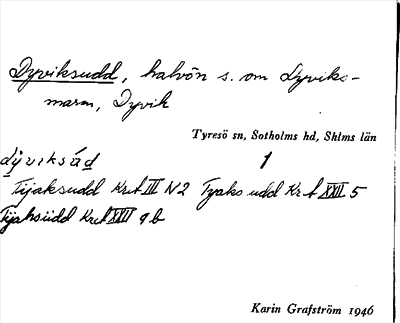 Dyviksudd, halvön s. om Dyviks-
maren, Dyvik
Tyresö sn, Sotholms hd, Sthlms län
dỳviksúd 1
Tijaksudd Krt III N2 Tyaksudd Krt XXII 5
Tijaksudd Krt XXII 9b
Karin Grafström 1946